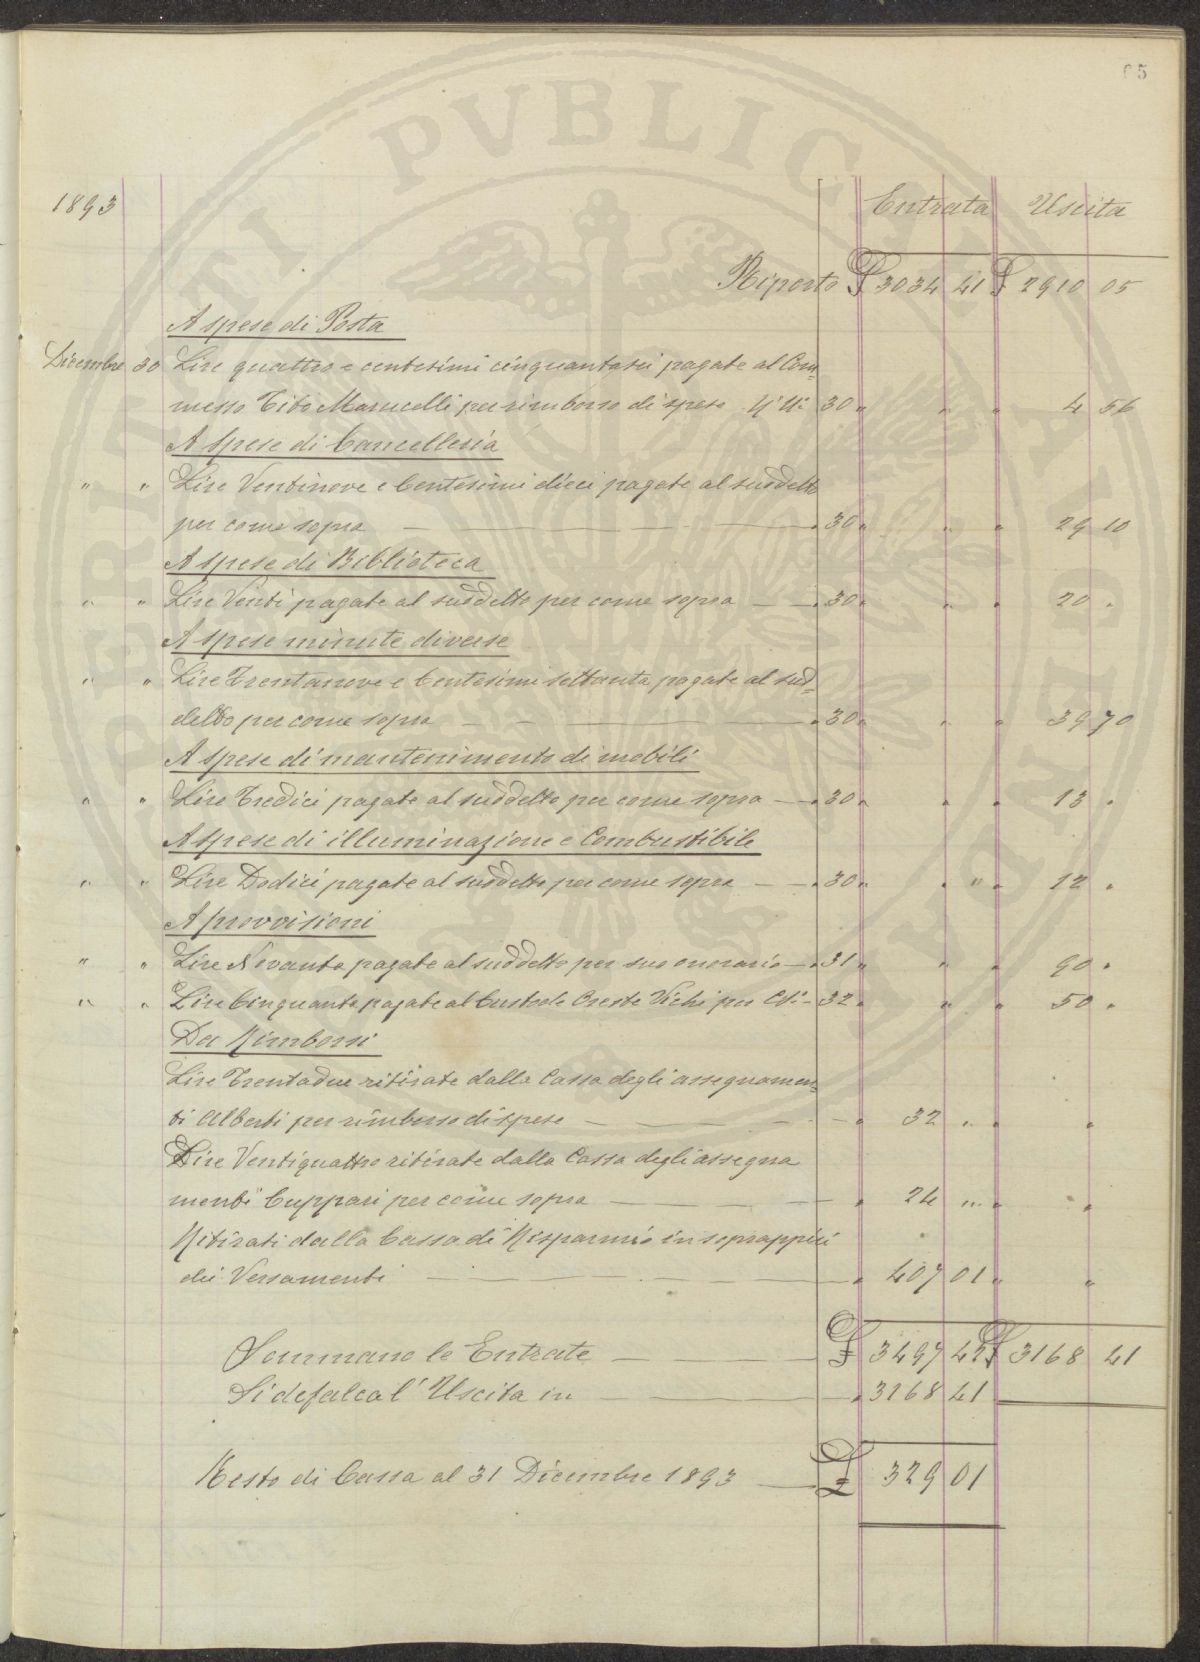 65
PVBLICAE
1893 Entrata Uscita
Riporto £ 3034 41 £ 2910 05
A spese di Posta
Dicembre 30 Lire quattro e centesimi cinquantasei pagate al Com=
messo Tito Marucelli per rimborso di spese 30 " " " 4 56
A spese di Cancelleria
" " Lire Ventinove e Centesimi dieci pagate al suddetto
per come sopra " 30 " " " 29 10
A spese di Biblioteca
" " Lire Venti pagate al suddetto per come sopra " 30 " " " 20 "
A spese minute diverse
" " Lire Trentanove e Centesimi settanta pagate al sud=
detto per come sopra " 30 " " " 39 70
A spese di mantenimento di mobili
" " Lire Tredici pagate al suddetto per come sopra " 30 " " " 13 "
A spese di illuminazione e Combustibile
" " Lire Dodici pagate al suddetto per come sopra " 30 " " " 12 "
A provvisioni
" " Lire Novanta pagate al suddetto per suo onorario " 31 " " " 90 "
" " Lire Cinquanta pagate al Custode Oreste Vichi per " 32 " " " 50 "
Da Rimborsi
Lire Trentadue ritirate dalla Cassa degli assegnamen=
ti Alberti per rimborso di spese " 32 " " "
Lire Ventiquattro ritirate dalla Cassa degli assegna
menti Cuppari per come sopra " 24 " " "
Ritirati dalla Cassa di Risparmio in soprappiù
dei Versamenti " 407 01 " "
Sommano le Entrate £ 3497 42 £ 3168 41
Si defalca l'Uscita in " 3168 41
Resto di Cassa al 31 Dicembre 1893 £ 329 01